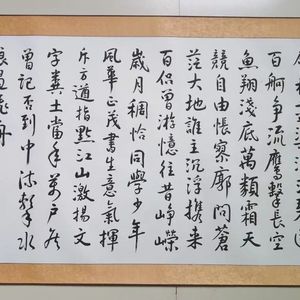 百舸争流鹰擊長空
魚翔淺底萬類霜天
競自由悵寥廓問蒼
茫大地誰主沉浮携来
百侣曾游憶往昔崢嶸
歲月稠恰同學少年
風華正茂書生意氣揮
斥方遒指點江山激揚文
字糞土當年萬户侯
曾記否到中流擊水
浪遏飛舟